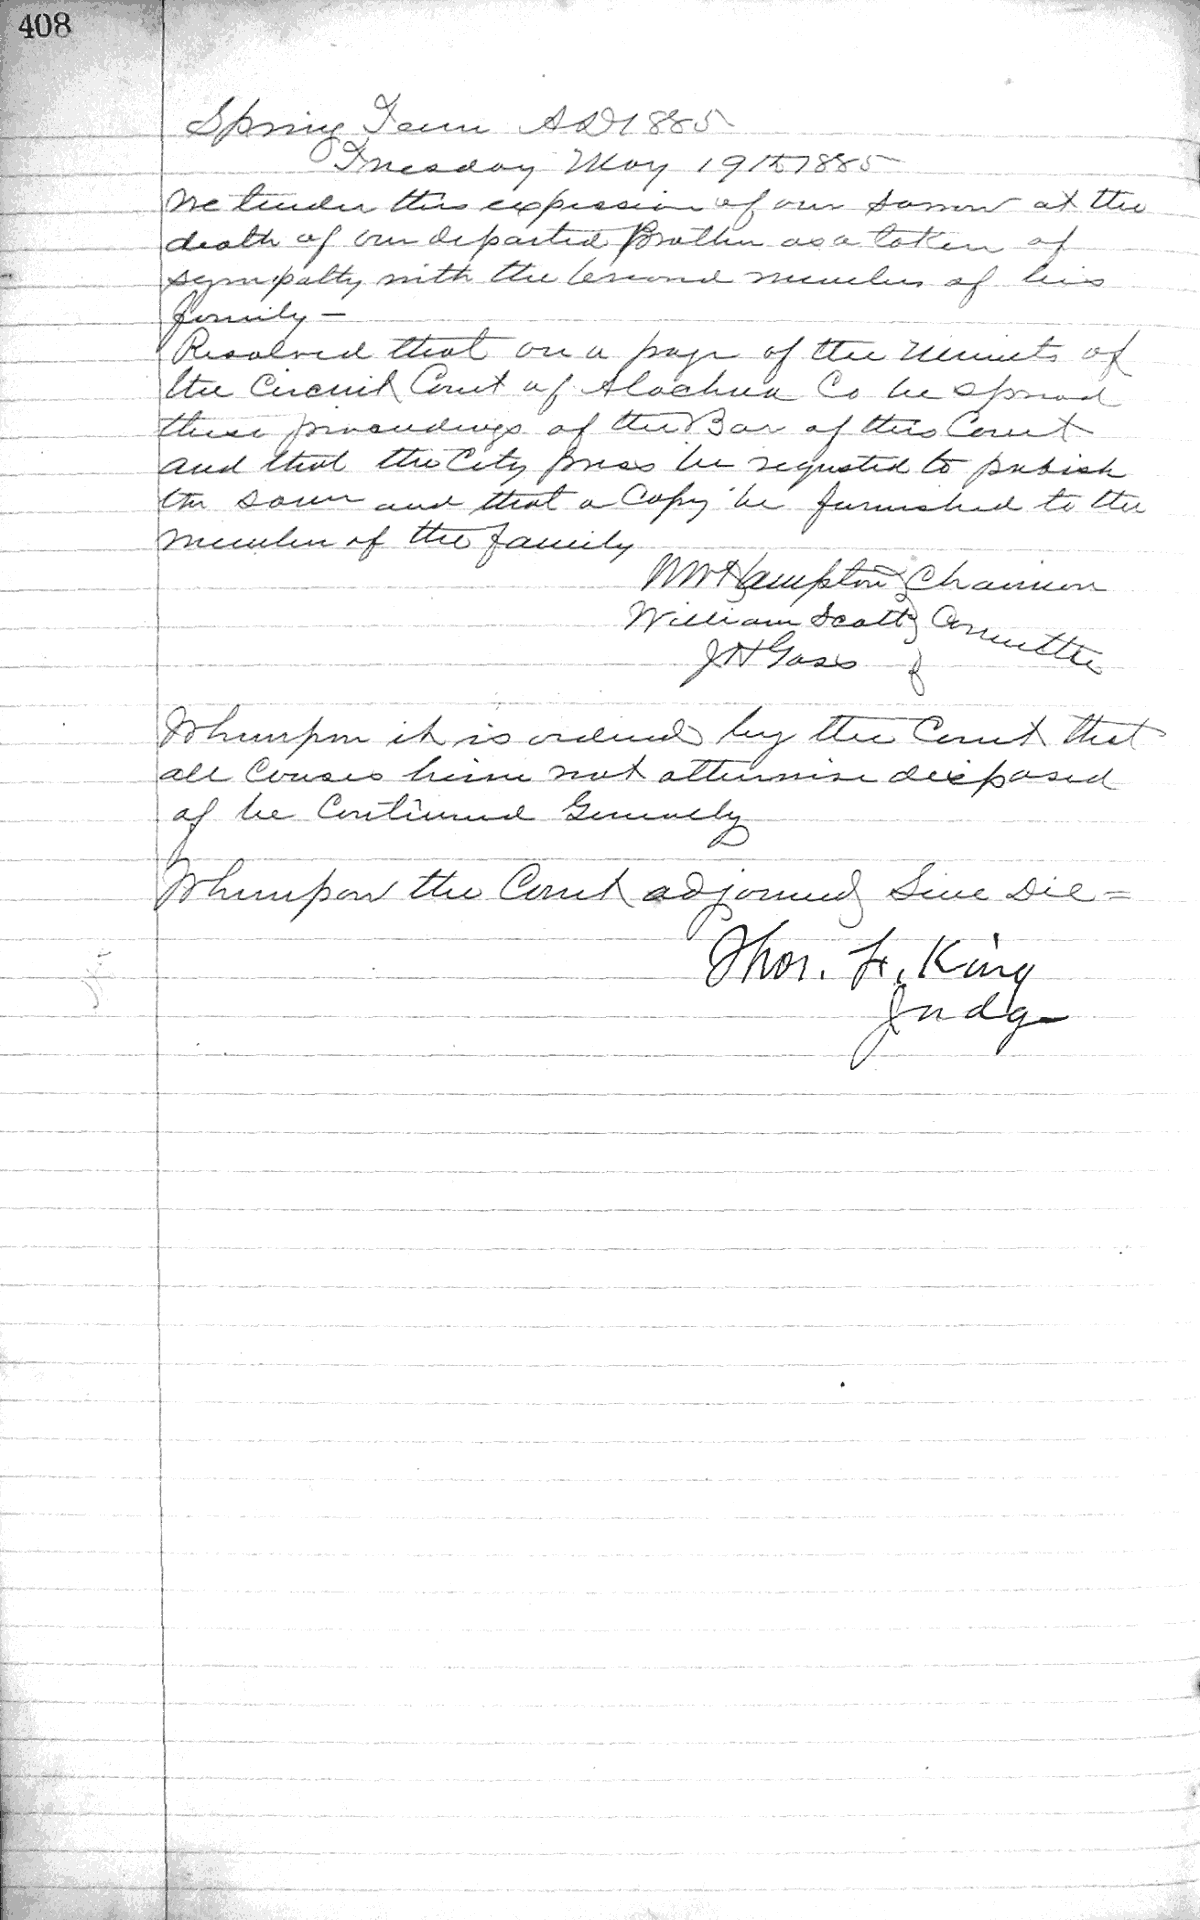 408
Spring Term AD 1885
Tuesday May 19th 1885
We tender this expression of our sorrow at the
death of our departed Brother as a token of
sympathy with the bereaved members of his
family —
Resolved that on a page of the Minuets of
the Circuit Court of Alachua Co be spread
these proceedings of the Bar of this Court
and that the City press be requested to publish
the same and that a Copy be furnished to the
member of the family
W W Hampton } Chairman
William Scott } Committee
J H Goss }
Whereupon it is ordered by the Court that
all Causes herein not otherwise disposed
of be Continued Generally
Whereupon the Court adjourned Sine Die =
Thos. F. King
Judge